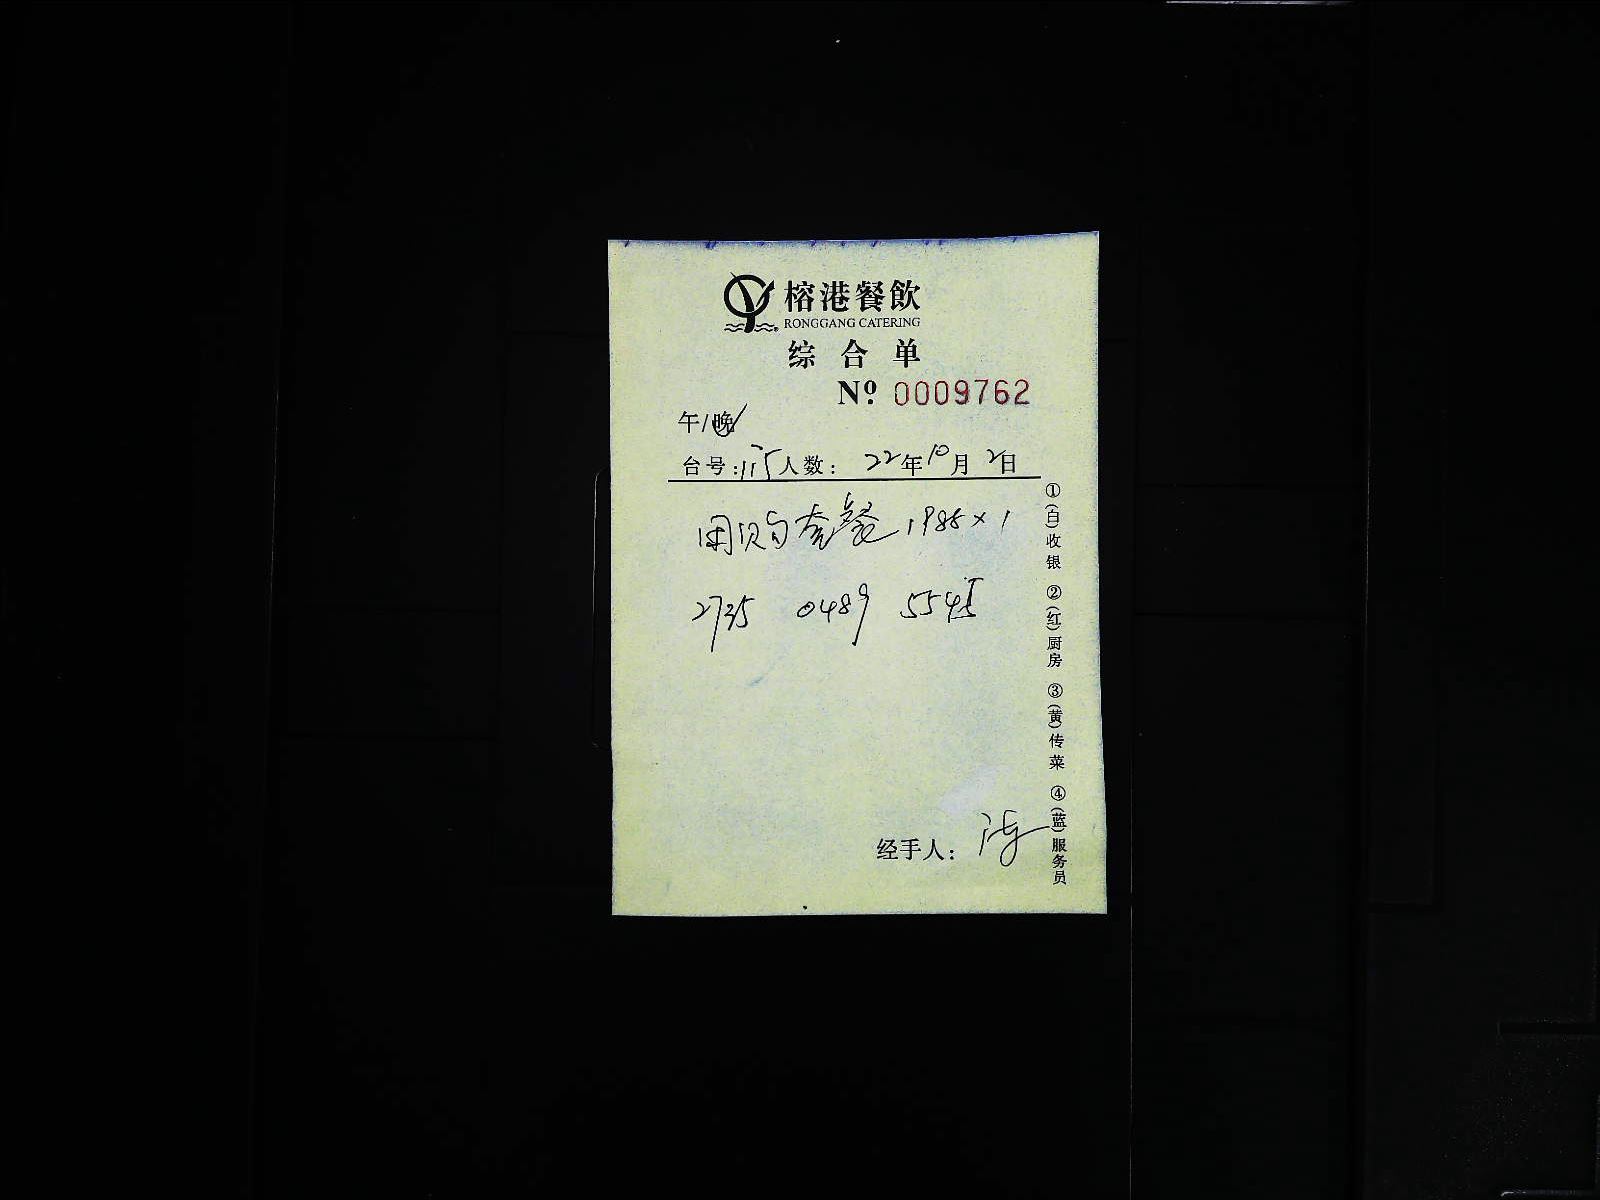 榕港餐飲
RONGGANG CATERING
综合单
Nº 0009762
午/晚
台号:115人数: 22年10月2日
团购套餐1986×1
2735 0489 5545
经手人:
①(白)收银 ②(红)厨房 ③(黄)传菜 ④(蓝)服务员